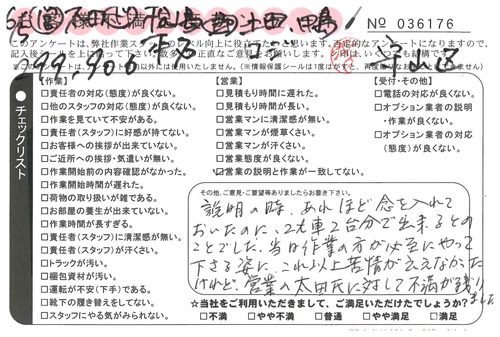 No 036176
このアンケートは、弊社作業スタッフのレベル向上に役立てたいと思います。否定的なアンケートになりますので、
チェックリスト
【作業】
□責任者の対応(態度)が良くない。
□他のスタッフの対応(態度)が良くない。
□作業を見ていて不安がある。
□責任者(スタッフ)に好感が持てない。
□お客様への挨拶が出来ていない。
□ご近所への挨拶・気遣いが無い。
□作業開始前の内容確認がなかった。
□作業開始時間が遅れた。
□荷物の取り扱いが雑である。
□お部屋の養生が出来ていない。
□作業時間が長すぎる。
□責任者(スタッフ)に清潔感が無い。
□責任者(スタッフ)が汗くさい。
□トラックが汚い。
□梱包資材が汚い。
□運転が不安(下手)である。
□靴下の履き替えをしてない。
□スタッフにやる気がみられない。
【営業】
□見積もり時間に遅れた。
□見積もり時間が長い。
□営業マンに清潔感が無い。
□営業マンが煙草くさい。
□営業マンが汗くさい。
□営業態度が良くない。
☑営業の説明と作業が一致してない。
【受付・その他】
□電話の対応が良くない。
□オプション業者の説明
・作業が良くない。
□オプション業者の対応
(態度)が良くない。
その他、ご意見・ご要望等ありましたらお書き下さい。
説明の時、あれほど念を入れて
おいたのに、2t車2台分で出来るとの
ことでした。当日作業の方が必至にやって
下さる姿に、これ以上苦情が云えなかった
けれど、営業の太田氏に対して不満が残り
ました
☆当社をご利用いただきまして、ご満足いただけたでしょうか?
□不満 □やや不満 □普通 □やや満足 □満足